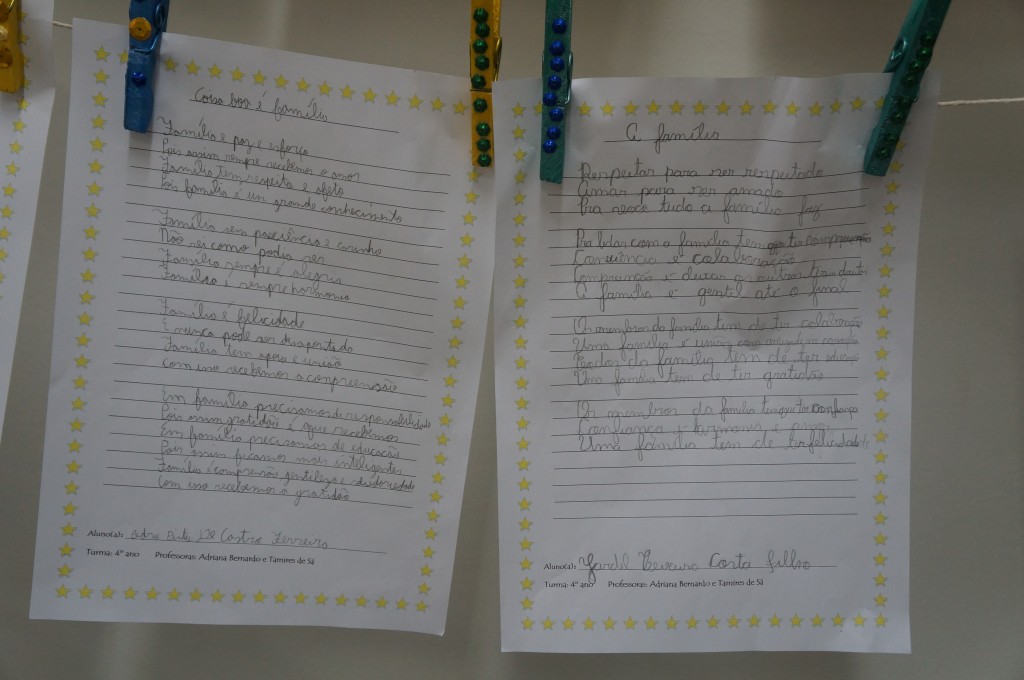 Coisa boa é família
Família é paz e esforço
Pois assim sempre recebemos o amor
Família tem respeito e afeto
Pois família é un grande conhecimento
Família sem paciência e carinho
Não sei como podia ser
Família sempre é alegria
Família é sempre harmonia
Família é felicidade
E nunca pode ser desapontada
Família tem apoio e união
Com isso recebemos a compreensão
Em família precisamos de responsabilidade
Pois assim gratidão é que recebemos
Em família precisamos de educação
Pois assim ficamos mais inteligentes
Família é compreensão gentileza e
Com isso recebemos a gratidão
Aluno(a): De Castro Ferreira
Turma: 4º ano Professoras: Adriana Bernardo e Tamires de Sá
A família
Respeitar para ser respeitado
Amar para ser amado
Pra você tudo a família faz
Pra lidar com a família tem que ter compreensão
e colaboração
Compreensão e deixar
A família é gentil até o final
Os membros da família tem de ter colaboração
Uma família é
Todos da família tem de ter
Um família tem de ter gratidão
Os membros da família tem que ter confiança
Confiança e harmonia e
Uma família tem de ter felicidade!!
Aluno(a): Costa filho
Turma: 4º ano Professoras: Adriana Bernardo e Tamires de Sá